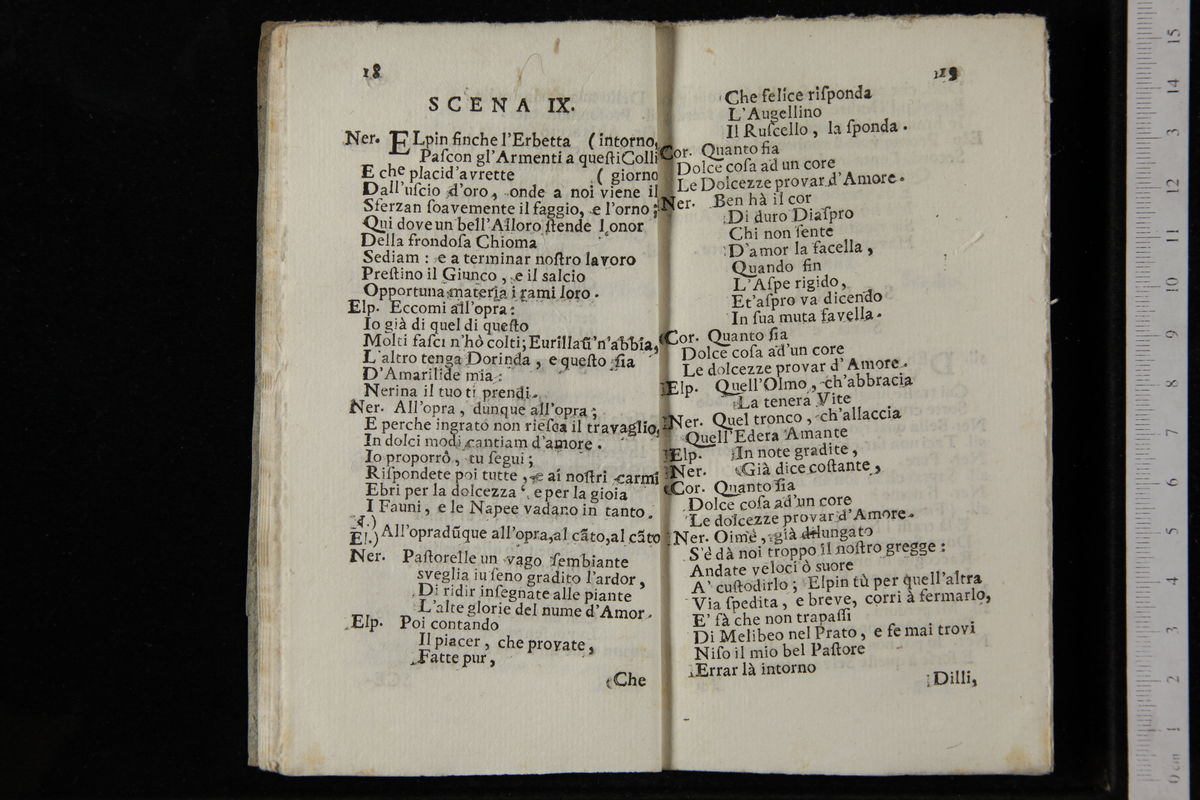 18
SCENA IX.
Ner. ELpin finche l'Erbetta ( intorno,
Paſcon gl'Armenti a queſti Colli
E che placid'avrette ( giorno
Dall'uſcio d'oro, onde a noi viene il
Sferzan ſoavemente il faggio, e l'orno;
Qui dove un bell'Alloro ſtende l onor
Della frondoſa Chioma
Sediam: e a terminar noſtro lavoro
Preſtino il Giunco, e il salcio
Opportuna materia i rami loro.
Elp. Eccomi all'opra:
Io già di quel di queſto
Molti faſci n'hò colti; Eurilla ũ n'abbia,
L'altro tenga Dorinda, e queſto ſia
D'Amarilide mia:
Nerina il tuo ti prendi.
Ner. All'opra, dunque all'opra;
E perche ingrato non rieſca il travaglio,
In dolci modi cantiam d'amore.
Io proporrò, tu ſegui;
Riſpondete poi tutte, e ai noſtri carmi
Ebri per la dolcezza, e per la gioia
I Fauni, e le Napee vadano in tanto.
El.) All'opra dũque all'opra, al cãto, al cãto
Ner. Paſtorelle un vago ſembiante
sveglia iu ſeno gradito l'ardor,
Di ridir inſegnate alle piante
L'alte glorie del nume d'Amor.
Elp. Poi contando
Il piacer, che provate,
Fatte pur,
Che
119
Che felice riſponda
L'Augellino
Il Ruſcello, la ſponda.
Cor. Quanto ſia
Dolce coſa ad un core
Le Dolcezze provar d'Amore.
Ner. Ben hà il cor
Di duro Diaſpro
Chi non ſente
D'amor la facella,
Quando fin
L'Aſpe rigido,
Et'aſpro va dicendo
In ſua muta favella.
Cor. Quanto ſia
Dolce coſa ad'un core
Le dolcezze provar d'Amore.
Elp. Quell'Olmo, ch'abbracia
La tenera Vite
Ner. Quel tronco, ch'allaccia
Quell'Edera Amante
Elp. In note gradite,
Ner. Già dice coſtante,
Cor. Quanto ſia
Dolce coſa ad'un core
Le dolcezze provar d'Amore.
Ner. Oimè, già dilungato
S'è dà noi troppo il noſtro gregge:
Andate veloci ò suore
A' cuſtodirlo; Elpin tù per quell'altra
Via ſpedita, e breve, corri à fermarlo,
E' fà che non trapaſſi
Di Melibeo nel Prato, e ſe mai trovi
Niſo il mio bel Paſtore
Errar là intorno
Dilli,
15
14
13
12
11
10
9
8
7
6
5
4
3
2
1
0 cm